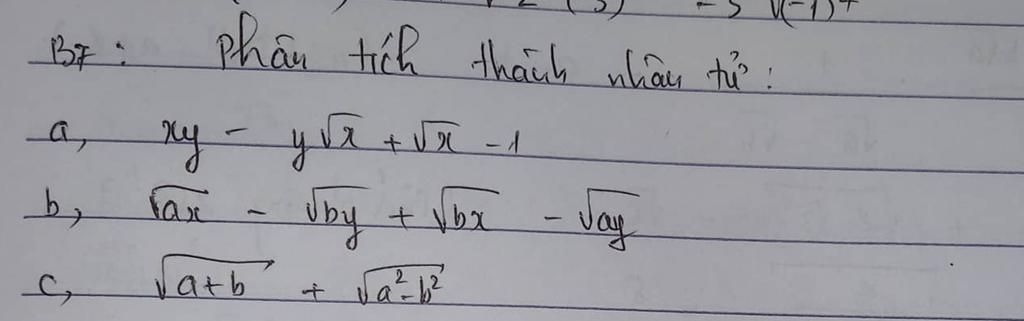 B7: Phân tích thành nhân tử:
a, xy - y√x + √x - 1
b, √ax - √by + √bx - √ay
c, √a+b + √a²-b²